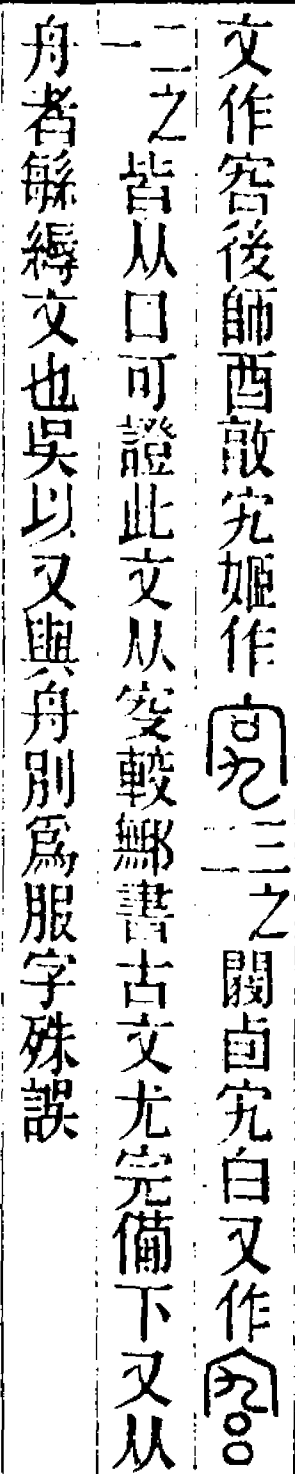 文作後師酉敦宄姬作三之二卣宄白又作
二之一皆从口可證此文从較鄦書古文尤完備下又从
舟者緐縟文也吳以又與舟別爲服字殊誤